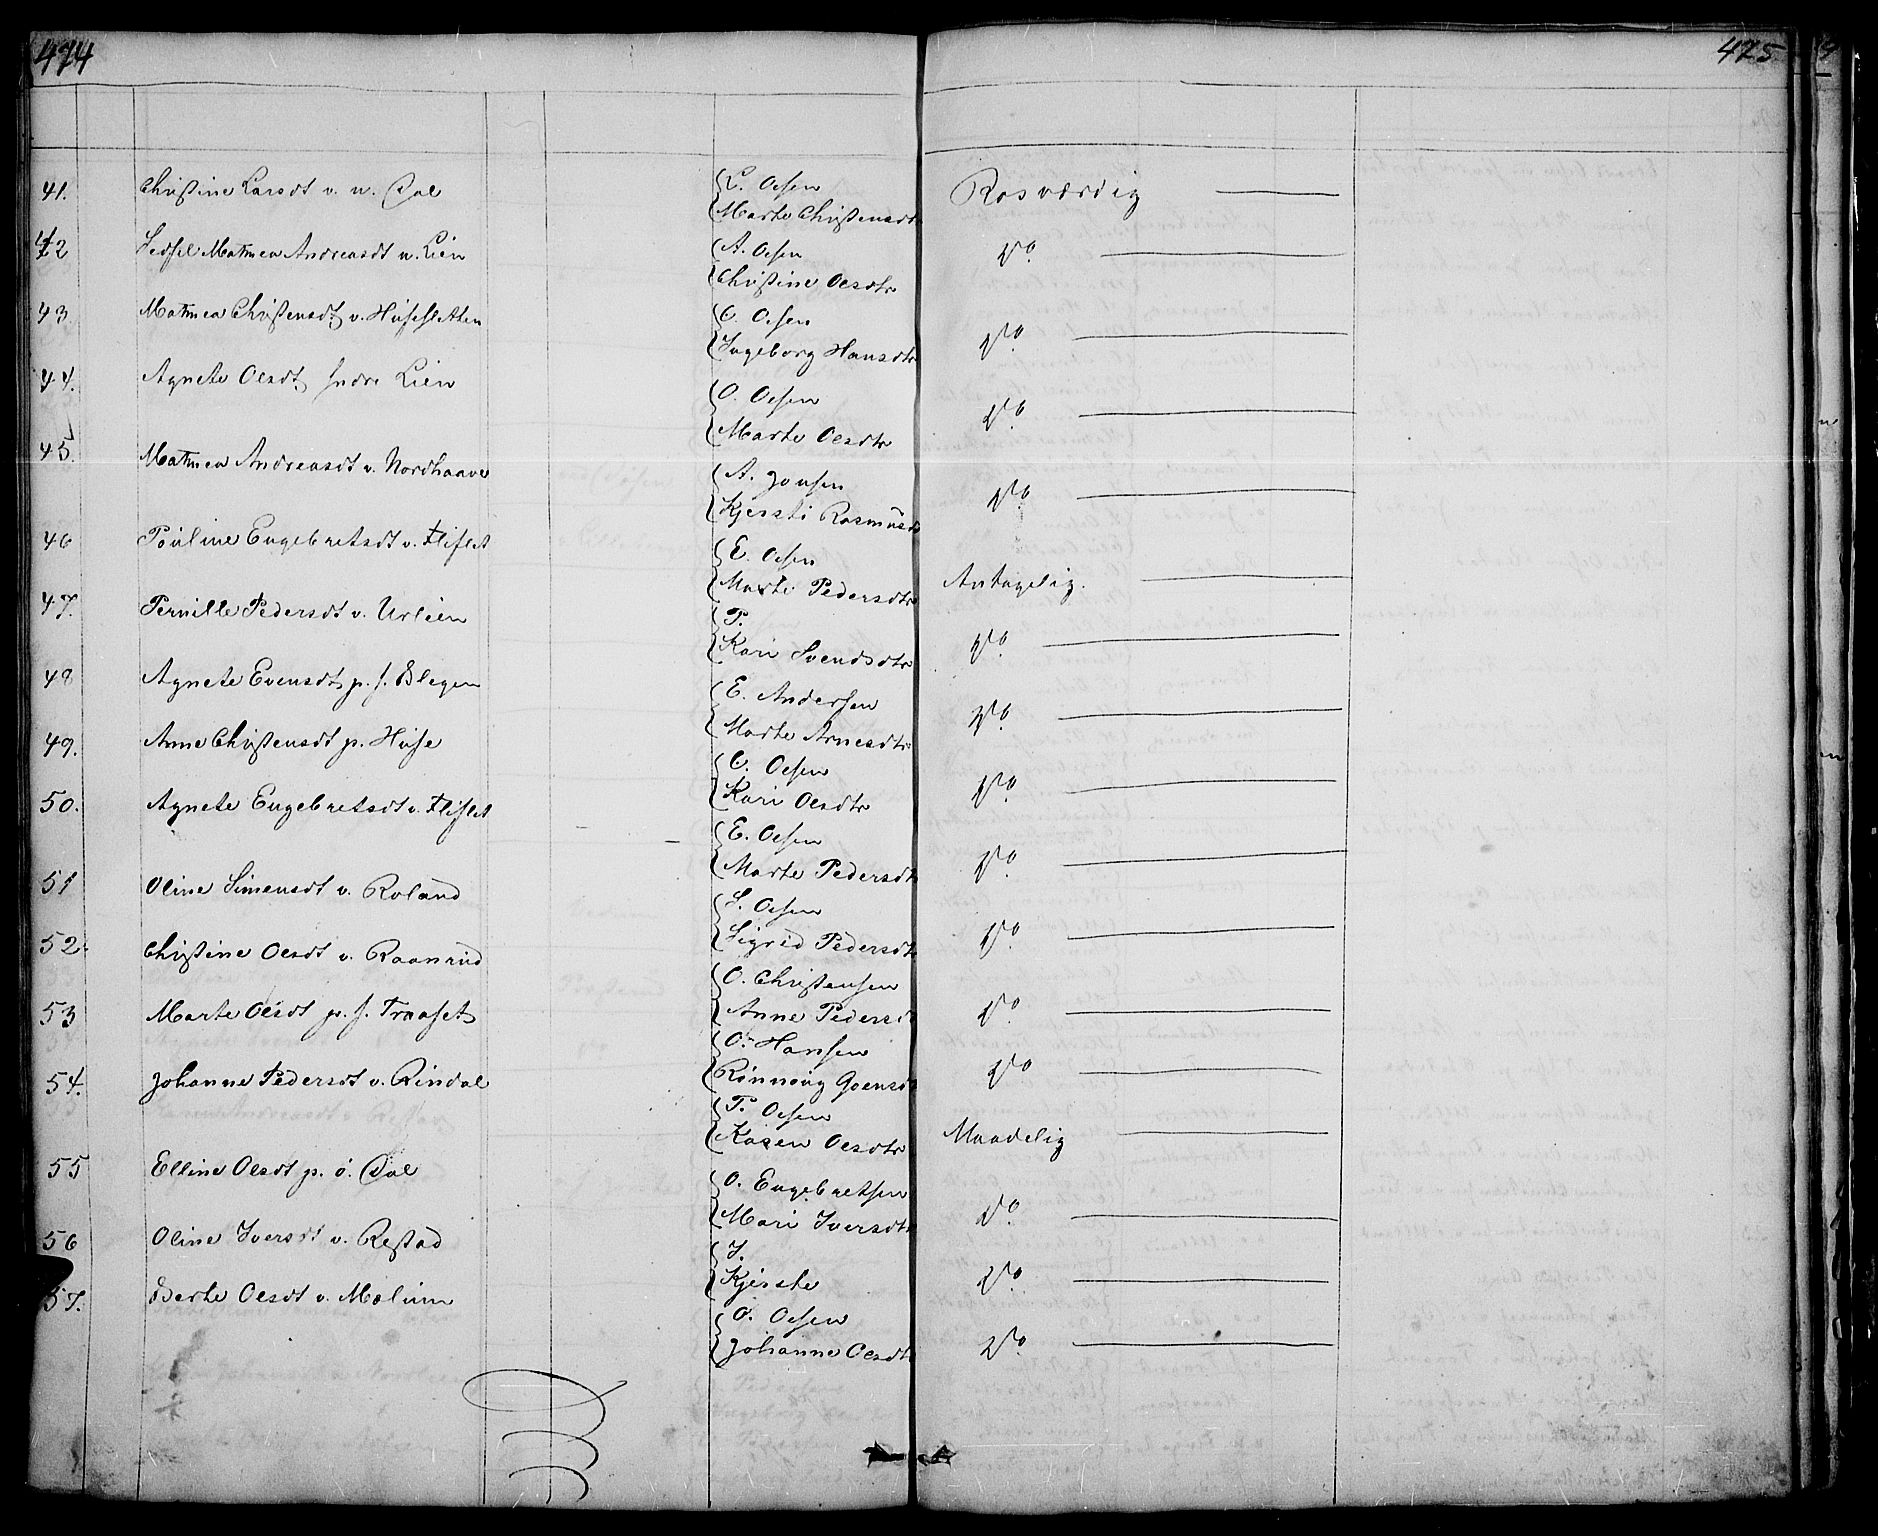 474
475
41. Christine Larsdt v. n. Dal {L. Olsen Rosværdig
Marte Christensdtr
42 Sedsel Mathea Andreasdt n. Lien {A. Olsen Do
Christine Olsdtr
43 Mathea Christensdt v. Husesletten {C. Olsen Do
Ingeborg Hansdtr
44. Agnete Olsdt Indre Lien {O. Olsen Do
Marte Olsdtr
45. Mathea Andreasdt v. Nordhaave {A. Jonsen Do
Kjersti Rasmusd
46 Pauline Engebretsdt v. Fliflet {E. Olsen Antagelig.
Marte Pedersdtr
47. Pernille Pedersdt v. Urlien {P. Do
Kari Svendsdtr
48 Agnete Evensdt p. s. Blegen {E. Andersen Do
Marte Arnesdtr
49. Anne Christensdt p. Huse {C. Olsen Do
Kari Olsdtr
50. Agnete Engebretsdt v. Fliflet {E. Olsen Do
Marte Pedersdt
51 Oline Simensdt v. Roland {S. Olsen Do
Sigrid Pedersdt
52. Christine Olsdt v. Raanrud {O. Christensen Do
Anne Pedersd
53 Marte Olsdt p. s. Traaset {O. Hansen Do
Rønnaug Goensd
54. Johanne Pedersdt v. Rindal {P. Olsen Maadelig
Karen Olsdtr
55 Elline Olsdt p. ó. Dal {O. Engebretsen Do
Mari Iversdt
56 Oline Iversdt v. Restad {I. Do
Kjerste
57. Berte Olsdt v. Mælum {O. Olsen Do
Johanne Olsdt